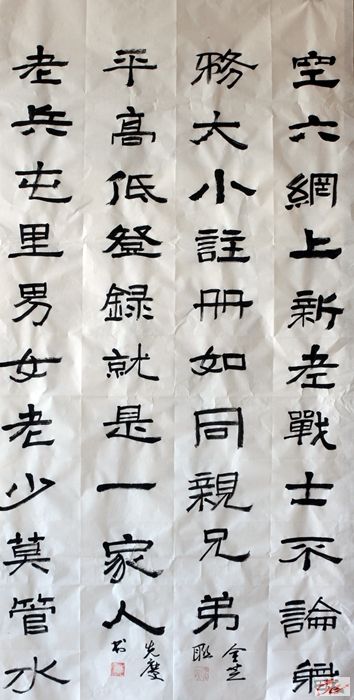 空六網上新老戰士不論職
務大小註冊如同親兄弟
平高低登録就是一家人
老兵屯里男女老少莫管水